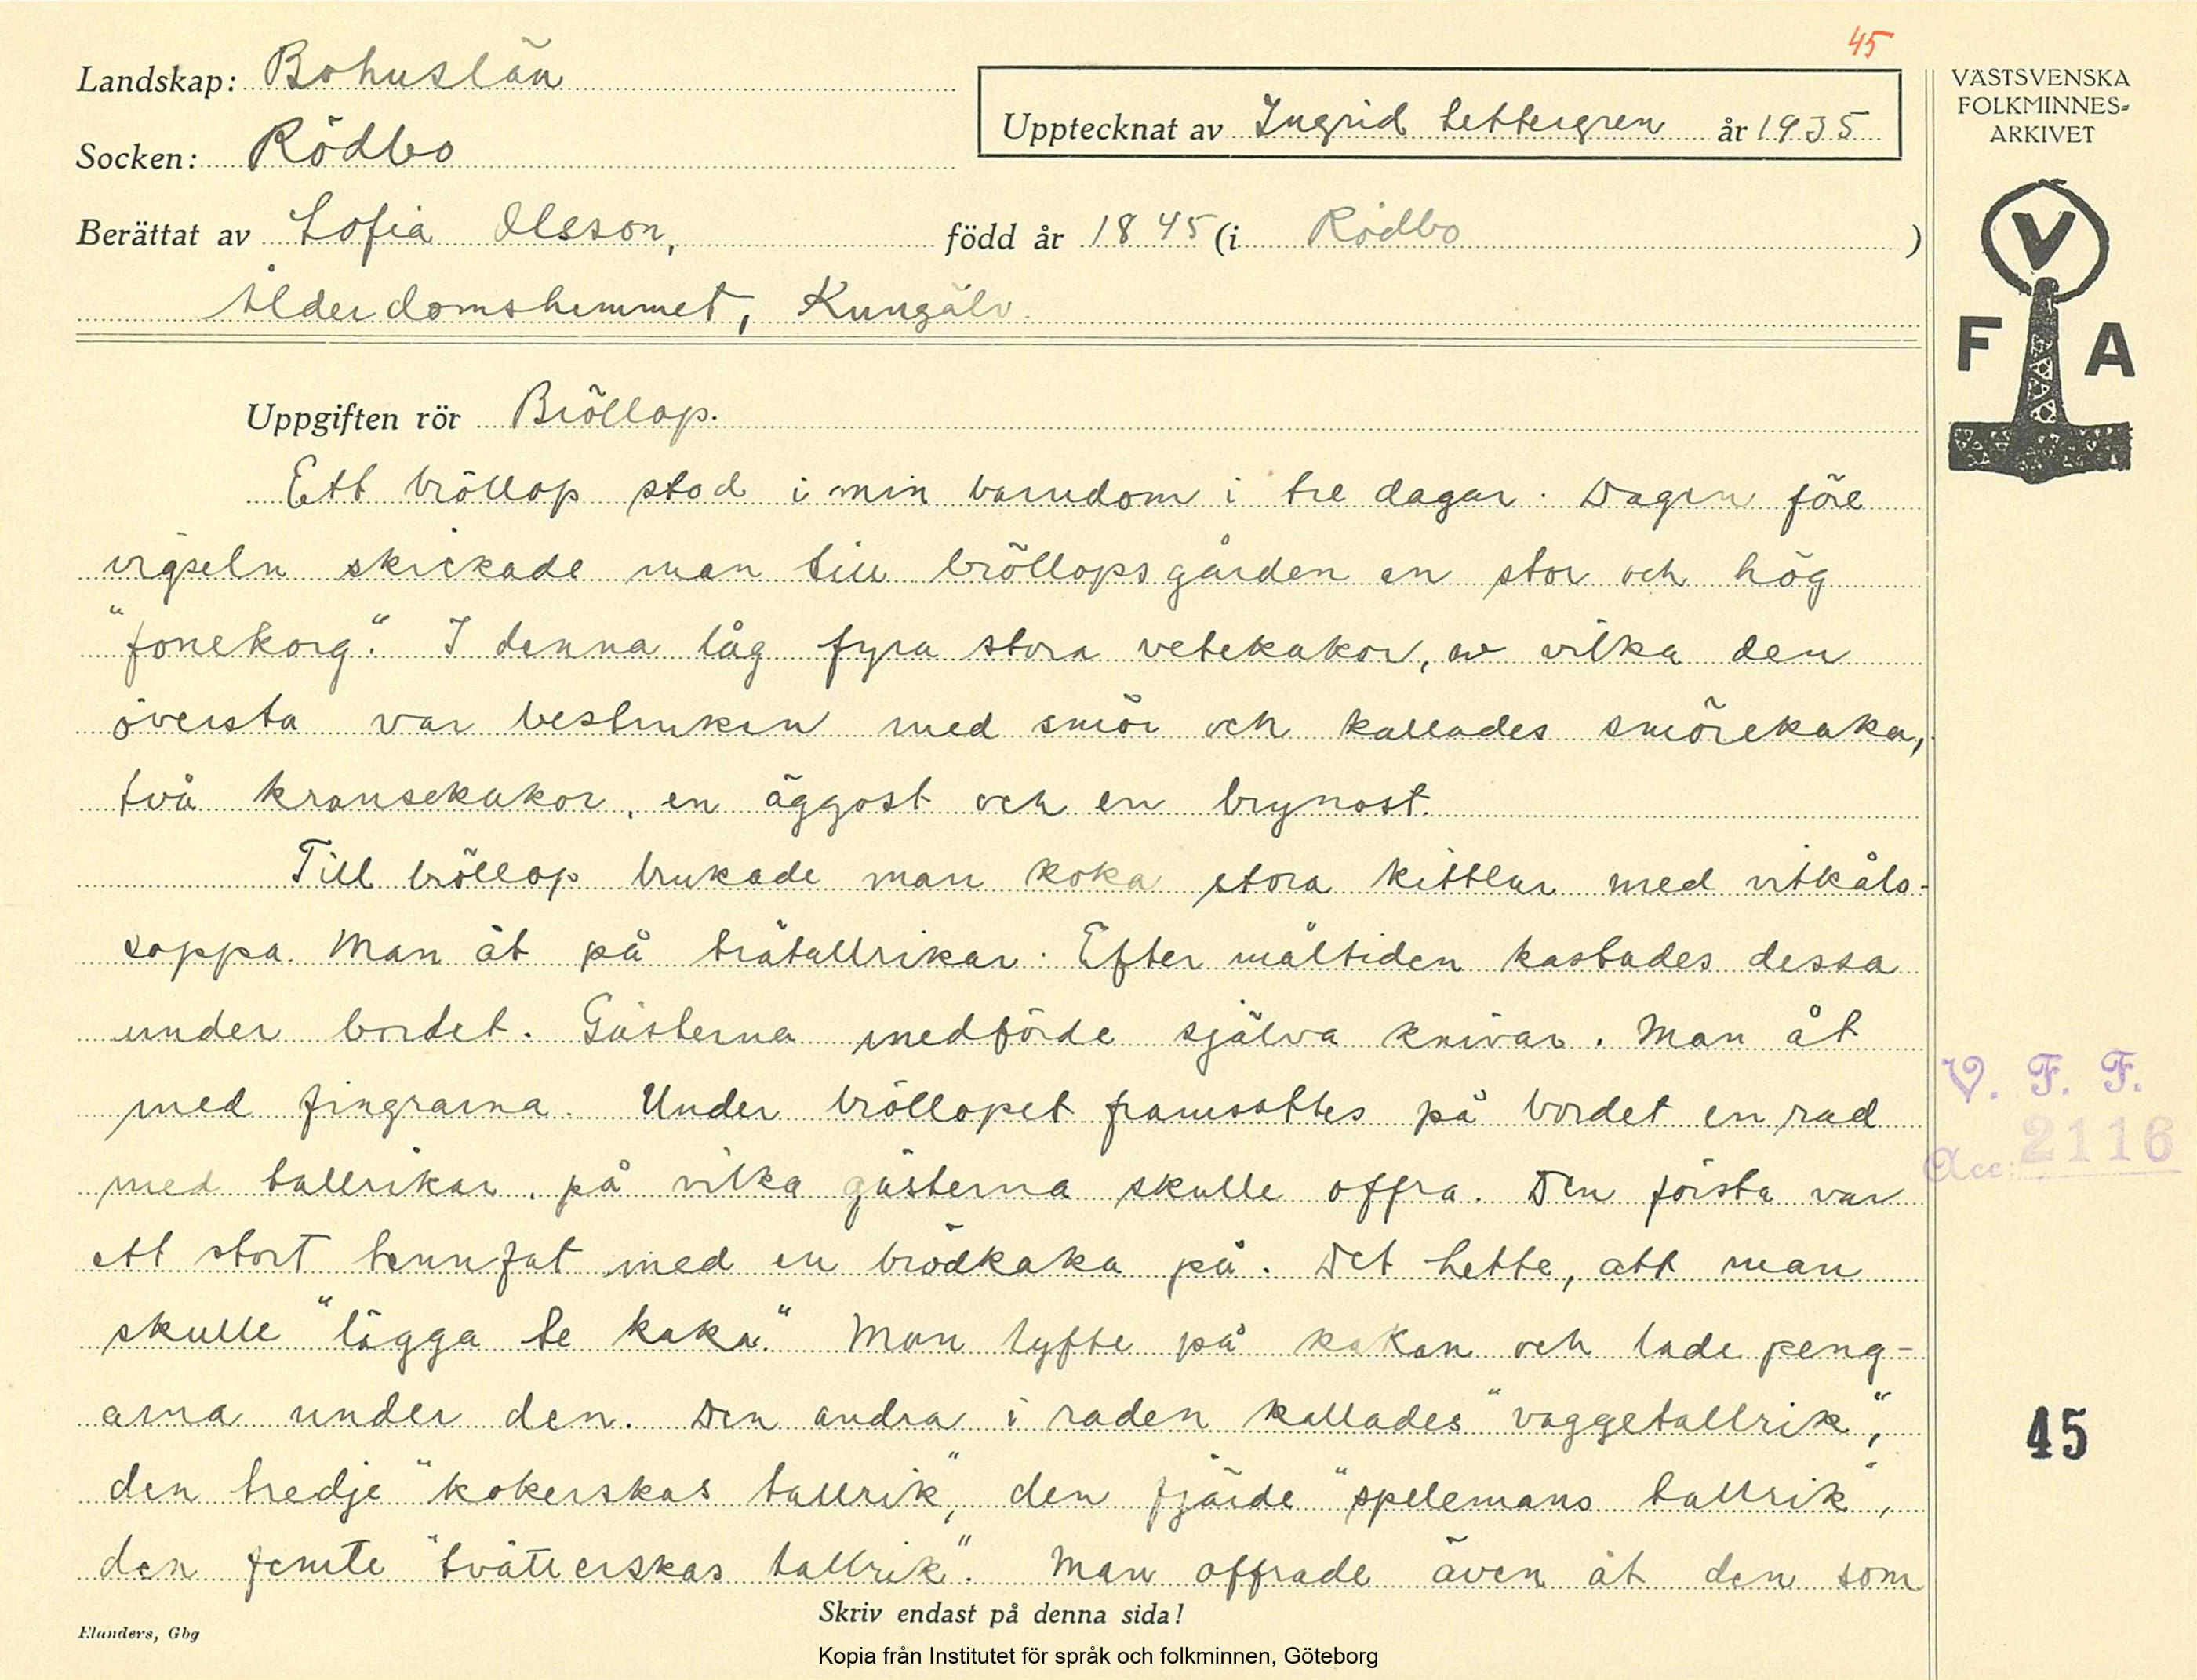 45
Landskap: Bohuslän
Socken: Rödbo
Upptecknat av Ingrid Settergren år 1935
Berättat av Sofia Olsson, född år 1845 (i Rödbo )
Ålderdomshemmet, Kungälv.
VÄSTSVENSKA
FOLKMINNES-
ARKIVET
V
F A
Uppgiften rör Bröllop.
Ett bröllop stod i min barndom i tre dagar. Dagen före
vigseln skickade man till bröllopsgården en stor och hög
"fonekorg." I denna låg fyra stora vetekakor, av vilka den
översta var bestruken med smör och kallades smörekaka,
två kransekakor, en äggost och en brynost.
Till bröllop brukade man koka stora kittlar med vitkåls-
soppa. Man åt på trätallrikar. Efter måltiden kastades dessa
under bordet. Gästerna medförde själva knivar. Man åt
med fingrarna. Under bröllopet framsattes på bordet en rad
med tallrikar, på vilka gästerna skulle offra. Den första var
ett stort tennfat med en brödkaka på. Det hette, att man
skulle "lägga te kaka." Man lyfte på kakan och lade peng-
arna under den. Den andra i raden kallades "vaggetallrik",
den tredje "kokerskas tallrik", den fjärde "spelemans tallrik",
den femte "tvätterskas tallrik". Man offrade även åt den som
V. F. F.
Acc: 2116
45
Skriv endast på denna sida!
Elanders, Gbg
Kopia från Institutet för språk och folkminnen, Göteborg